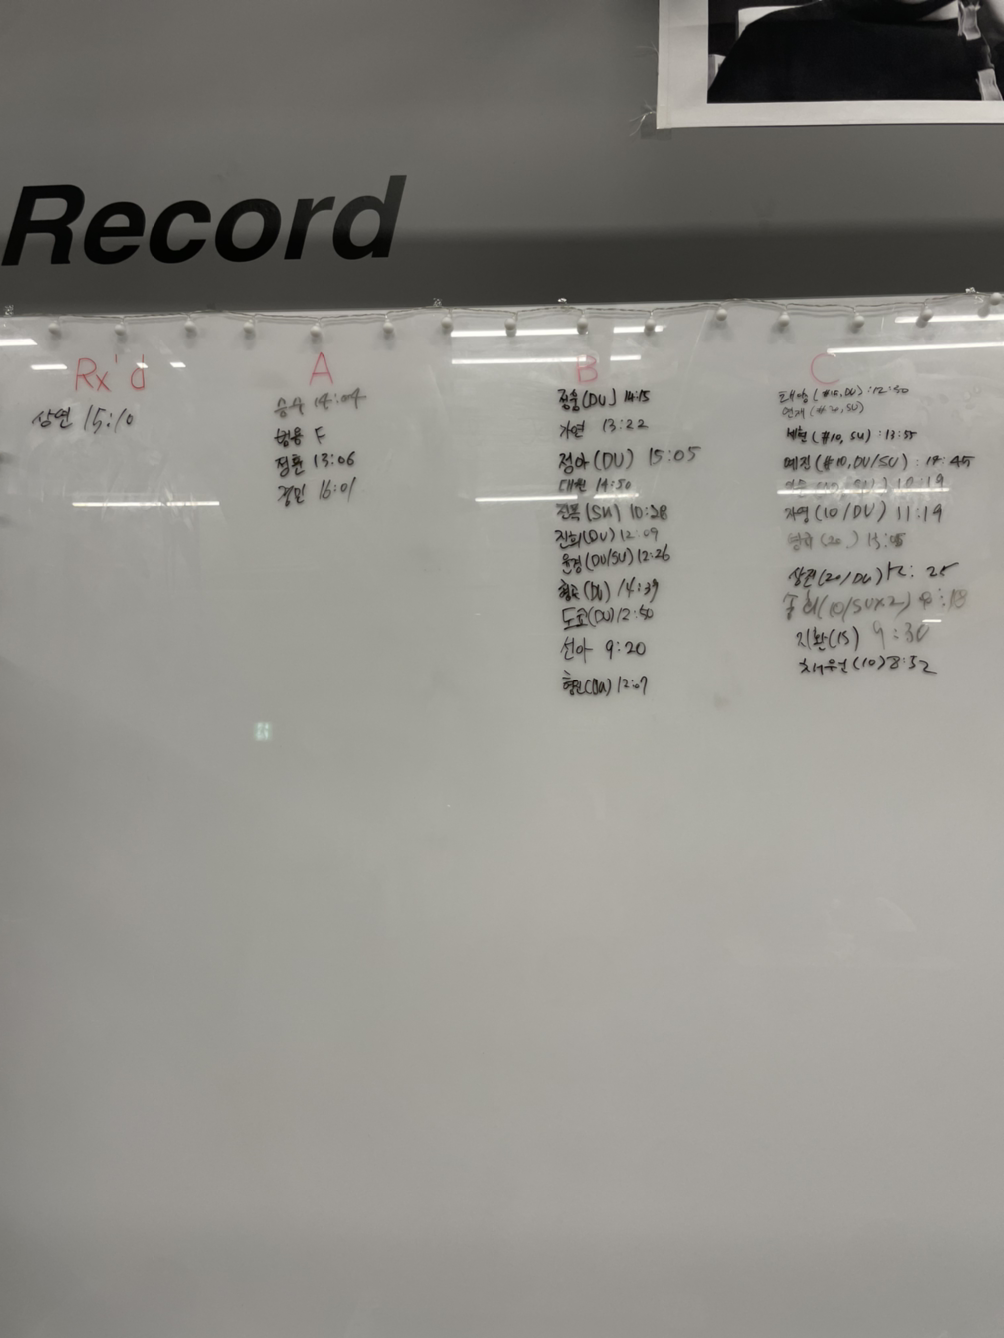 Record
Rx'd
상연 15:10
A
승우 14:04
형용 F
정환 13:06
경민 16:01
B
정훈 (DU) 14:15
가연 13:22
정아 (DU) 15:05
대원 14:50
진복 (SU) 10:38
진희 (DU) 12:09
윤경 (DU/SU) 12:26
(DU) 14:39
(DU) 12:50
선아 9:20
12:07
C
(#15, DU) : 12:50
연재 (#20, SU)
세현 (#10, SU) : 13:55
예진 (#10, DU/SU) : 14:45
자영 (10/DU) 11:19
(20 )
상진 (20/DU) 12:25
(10/SUx2)
지환 (15) 9:30
채원 (10) 8:52